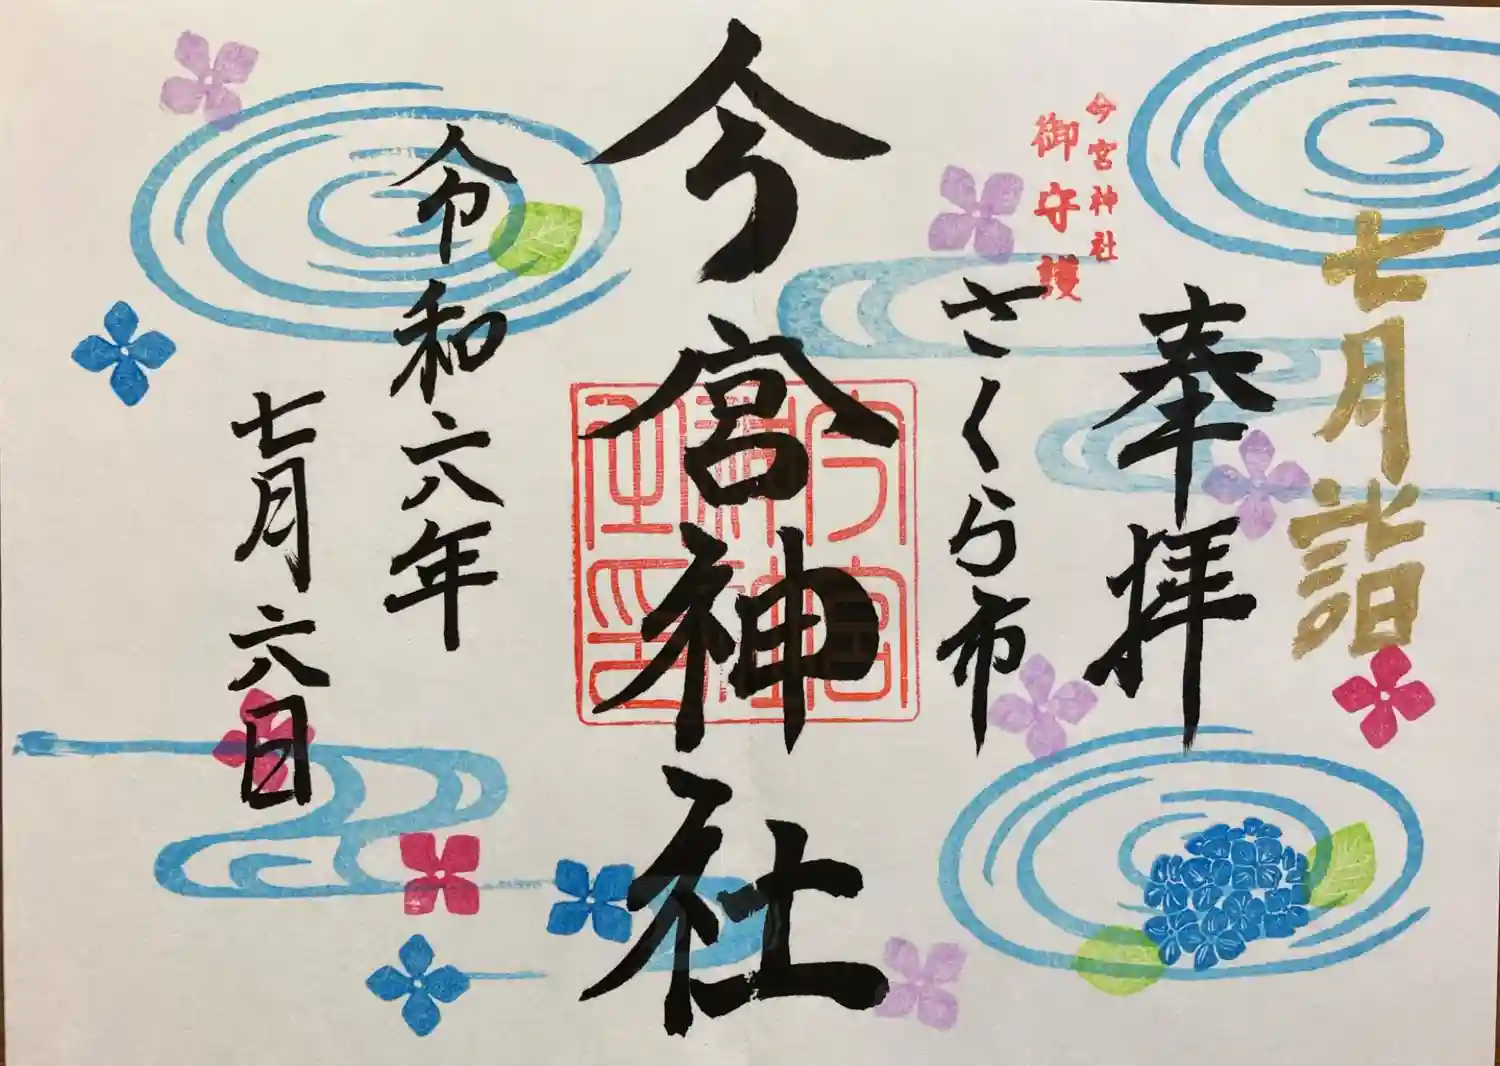 七月詣
奉拝
今宮神社
御守護
さくら市
今宮神社
今宮神社印
令和六年
七月六日